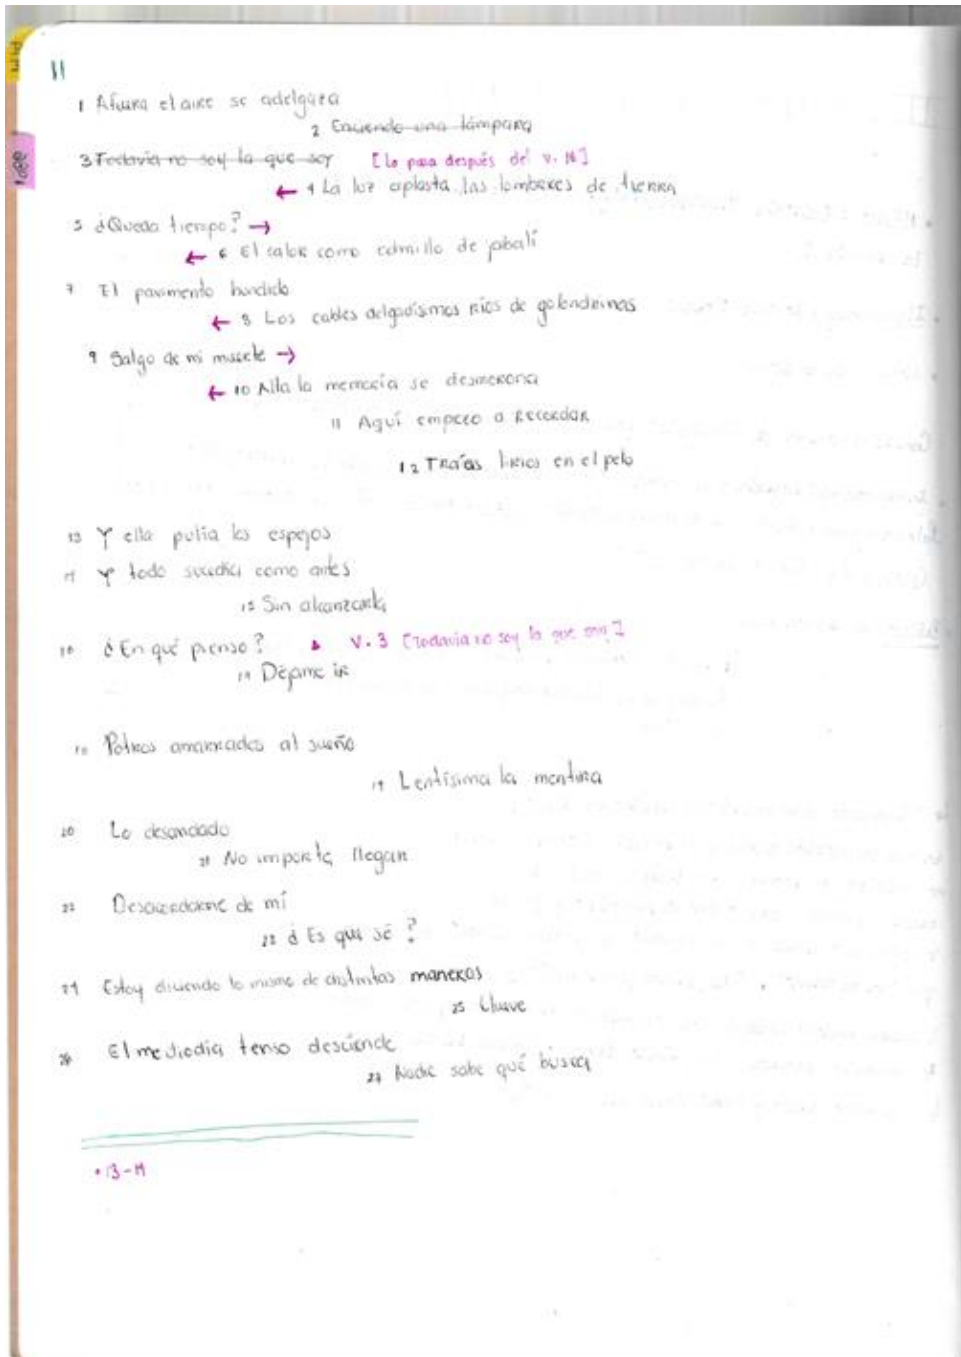 11
1 Afuera el aire se adelgaza
2 Enciendo una lámpara
3 Todavía no soy la que soy [lo pasa después del v. 16]
← 4 La luz aplasta las lombrices de tierra
5 ¿Queda tiempo? →
← 6 El calor como colmillo de jabalí
7 El pavimento hundido
← 8 Los cables delgadísimos ríos de golondrinas
9 Salgo de mi muerte →
← 10 Allá la memoria se desmorona
11 Aquí empiezo a recordar
12 Traías lirios en el pelo
13 Y ella pulía los espejos
14 Y todo sucedía como antes
15 Sin alcanzarla
16 ¿En qué pienso? V. 3 [Todavía no soy la que soy]
17 Déjame ir
18 Potros amarrados al sueño
19 Lentísima la mentira
20 Lo desandado
21 No importa, llegan
22 Desacordarme de mí
23 ¿Es que sé?
24 Estoy diciendo lo mismo de distintas maneras
25 Llueve
26 El mediodía tenso desciende
27 Nadie sabe qué busca
• 13-14